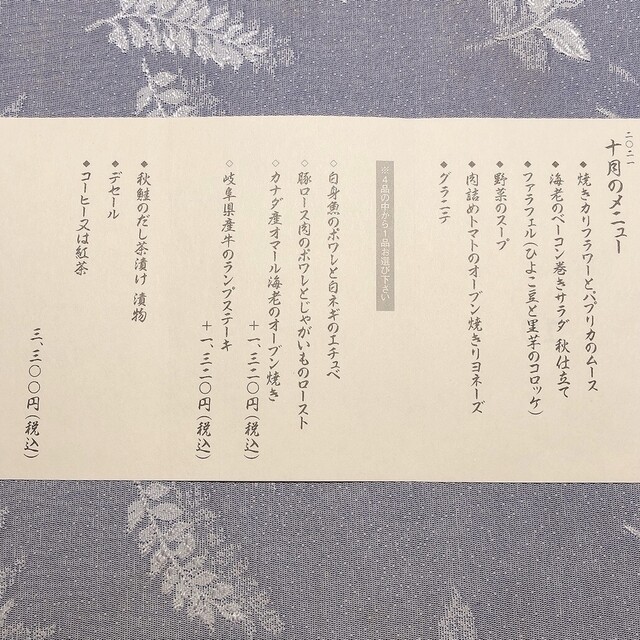 二〇二一
十月のメニュー
◆焼きカリフラワーとパプリカのムース
◆海老のベーコン巻きサラダ 秋仕立て
◆ファラフェル(ひよこ豆と里芋のコロッケ)
◆野菜のスープ
◆肉詰めトマトのオーブン焼きリヨネーズ
◆グラニテ
※4品の中から1品お選び下さい
◇白身魚のポワレと白ネギのエチュベ
◇豚ロース肉のポワレとじゃがいものロースト
◇カナダ産オマール海老のオーブン焼き
+一、三二〇円(税込)
◇岐阜県産牛のランプステーキ
+一、三二〇円(税込)
◆秋鮭のだし茶漬け 漬物
◆デセール
◆コーヒー又は紅茶
三、三〇〇円(税込)